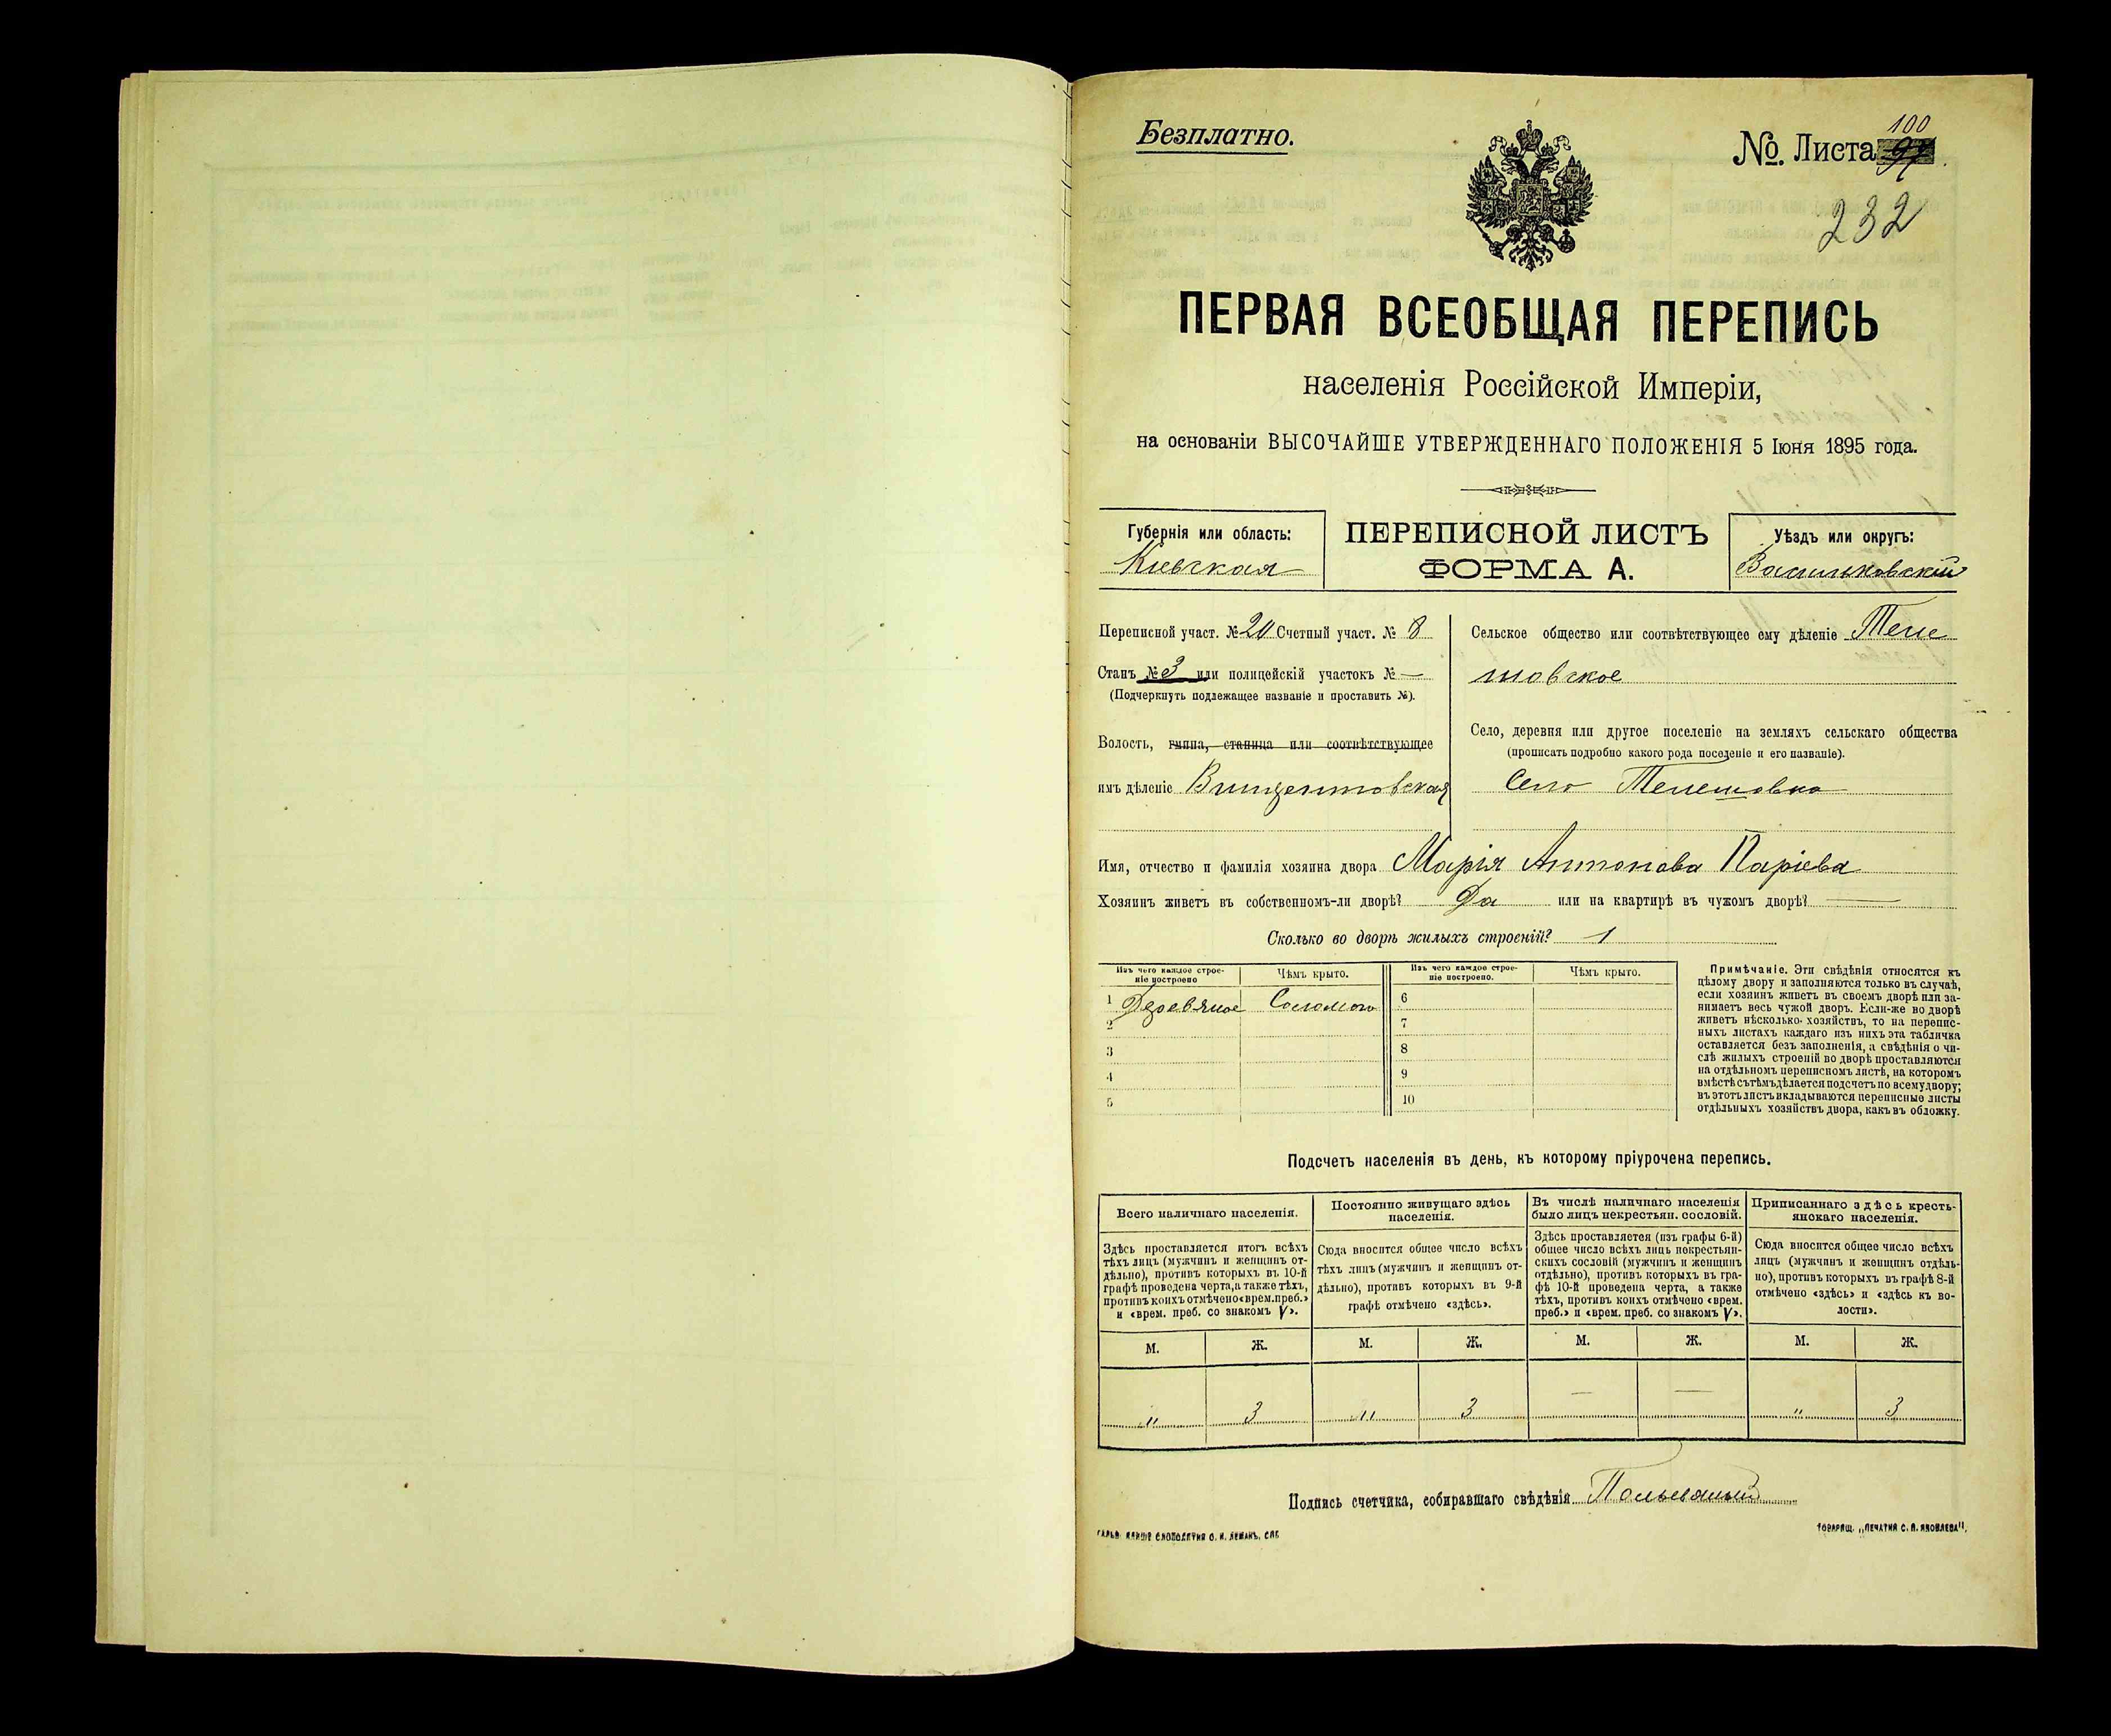 Безплатно.
№. Листа 100
232
ПЕРВАЯ ВСЕОБЩАЯ ПЕРЕПИСЬ
населенія Россійской Имперіи,
на основаніи ВЫСОЧАЙШЕ УТВЕРЖДЕННАГО ПОЛОЖЕНІЯ 5 Іюня 1895 года.
Губернія или область:
Кіевская
ПЕРЕПИСНОЙ ЛИСТЪ
ФОРМА А.
Уѣздъ или округъ:
Васильковскій
Переписной участ. № 20 Счетный участ. № 8
Станъ № 3 или полицейскій участокъ № —
(Подчеркнуть подлежащее названіе и проставить №).
Волость, гмина, станица или соотвѣтствующее
имъ дѣленіе Винцентовская
Сельское общество или соотвѣтствующее ему дѣленіе Теле
шовское
Село, деревня или другое поселеніе на земляхъ сельскаго общества
(прописать подробно какого рода поселеніе и его названіе).
Село Телешовка
Имя, отчество и фамилія хозяина двора Марія Антонова Паріева
Хозяинъ живетъ въ собственномъ-ли дворѣ? Да или на квартирѣ въ чужомъ дворѣ? —
Сколько во дворѣ жилыхъ строеній? 1
Изъ чего каждое строе-
ніе построено
Чѣмъ крыто.
Изъ чего каждое строе-
ніе построено.
Чѣмъ крыто.
1 Деревяное Соломою 6
2 7
3 8
4 9
5 10
Примѣчаніе. Эти свѣдѣнія относятся къ
цѣлому двору и заполняются только въ случаѣ,
если хозяинъ живетъ въ своемъ дворѣ или за-
нимаетъ весь чужой дворъ. Если-же во дворѣ
живетъ нѣсколько хозяйствъ, то на перепис-
ныхъ листахъ каждаго изъ нихъ эта табличка
оставляется безъ заполненія, а свѣдѣнія о чи-
слѣ жилыхъ строеній во дворѣ проставляются
на отдѣльномъ переписномъ листѣ, на которомъ
вмѣстѣ съ тѣмъ дѣлается подсчетъ по всему двору;
въ этотъ листъ вкладываются переписные листы
отдѣльныхъ хозяйствъ двора, какъ въ обложку.
Подсчетъ населенія въ день, къ которому пріурочена перепись.
Всего наличнаго населенія.
Здѣсь проставляется итогъ всѣхъ
тѣхъ лицъ (мужчинъ и женщинъ от-
дѣльно), противъ которыхъ въ 10-й
графѣ проведена черта, а также тѣхъ,
противъ коихъ отмѣчено «врем. преб.»
и «врем. преб. со знакомъ V».
Постоянно живущаго здѣсь
населенія.
Сюда вносится общее число всѣхъ
тѣхъ лицъ (мужчинъ и женщинъ от-
дѣльно), противъ которыхъ въ 9-й
графѣ отмѣчено «здѣсь».
Въ числѣ наличнаго населенія
было лицъ некрестьян. сословій.
Здѣсь проставляется (изъ графы 6-й)
общее число всѣхъ лицъ некрестьян-
скихъ сословій (мужчинъ и женщинъ
отдѣльно), противъ которыхъ въ гра-
фѣ 10-й проведена черта, а также
тѣхъ, противъ коихъ отмѣчено «врем.
преб.» и «врем. преб. со знакомъ V».
Приписаннаго здѣсь кресть-
янскаго населенія.
Сюда вносится общее число всѣхъ
лицъ (мужчинъ и женщинъ отдѣль-
но), противъ которыхъ въ графѣ 8-й
отмѣчено «здѣсь» и «здѣсь къ во-
лости».
М. Ж. М. Ж. М. Ж. М. Ж.
" 3 " 3 — — " 3
Подпись счетчика, собиравшаго свѣдѣнія
ТОВАРИЩ. „ПЕЧАТНЯ С. П. ЯКОВЛЕВА".